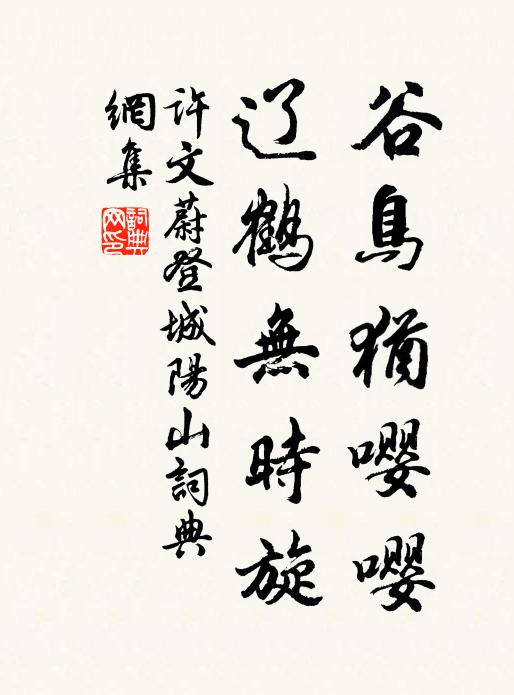 谷鳥猶嚶嚶
辽鶴無時旋
許文蔚登城陽山詞典
網集
詞典网印